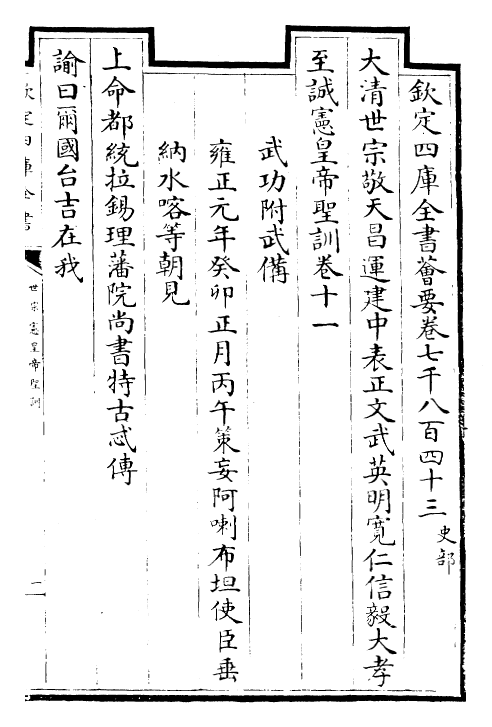 欽定四庫全書薈要卷七千八百四十三 史部
大清世宗敬天昌運建中表正文武英明寬仁信毅大孝
至誠憲皇帝聖訓卷十一
武功附武備
雍正元年癸卯正月丙午策妄阿喇布坦使臣垂
納水喀等朝見
上命都統拉錫理藩院尚書特古忒傳
諭曰爾國台吉在我
欽定四庫全書
世宗憲皇帝聖訓